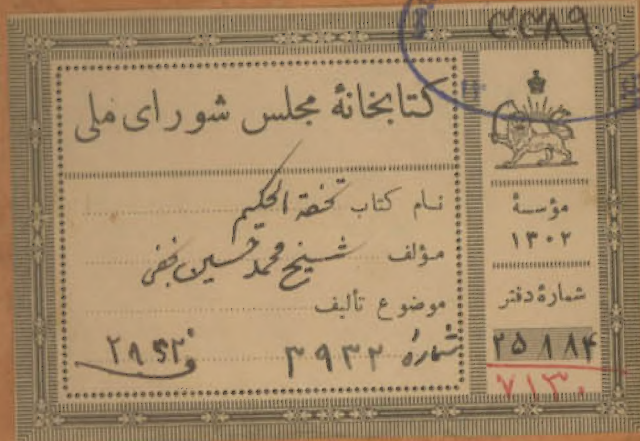 ۳۳۸۹
کتابخانهٔ مجلس شورای ملی
نام کتاب تحفة الحکیم
مؤلف شیخ محمد حسین نجفی
موضوع تألیف
شمارهٔ ۳۹۳۲
مؤسسهٔ
۱۳۰۲
شمارهٔ دفتر
۲۵۸۸۴
۷۱۳۰